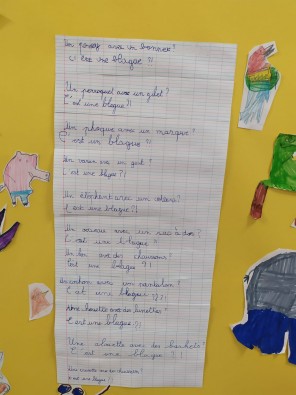 Un avec un bonnet !
C'est une blague ?!
Un perroquet avec un gilet ?
C'est une blague ?!
Un phoque avec un masque ?
C'est un blague ?!
Un avec un gant ?
C'est une blague ?!
Un éléphant avec un collant ?
C'est une blague ?!
Un oiseau avec un sac à dos ?
C'est une blague
Un avec des chaussons ?
C'est une blague ?!
Un cochon avec un pantalon ?
C'est une blague ?!
Une chouette avec des lunettes ?
C'est une blague ?!
Une alouette avec des baskets ?
C'est une blague ?!
Une avec des
C'est une blague